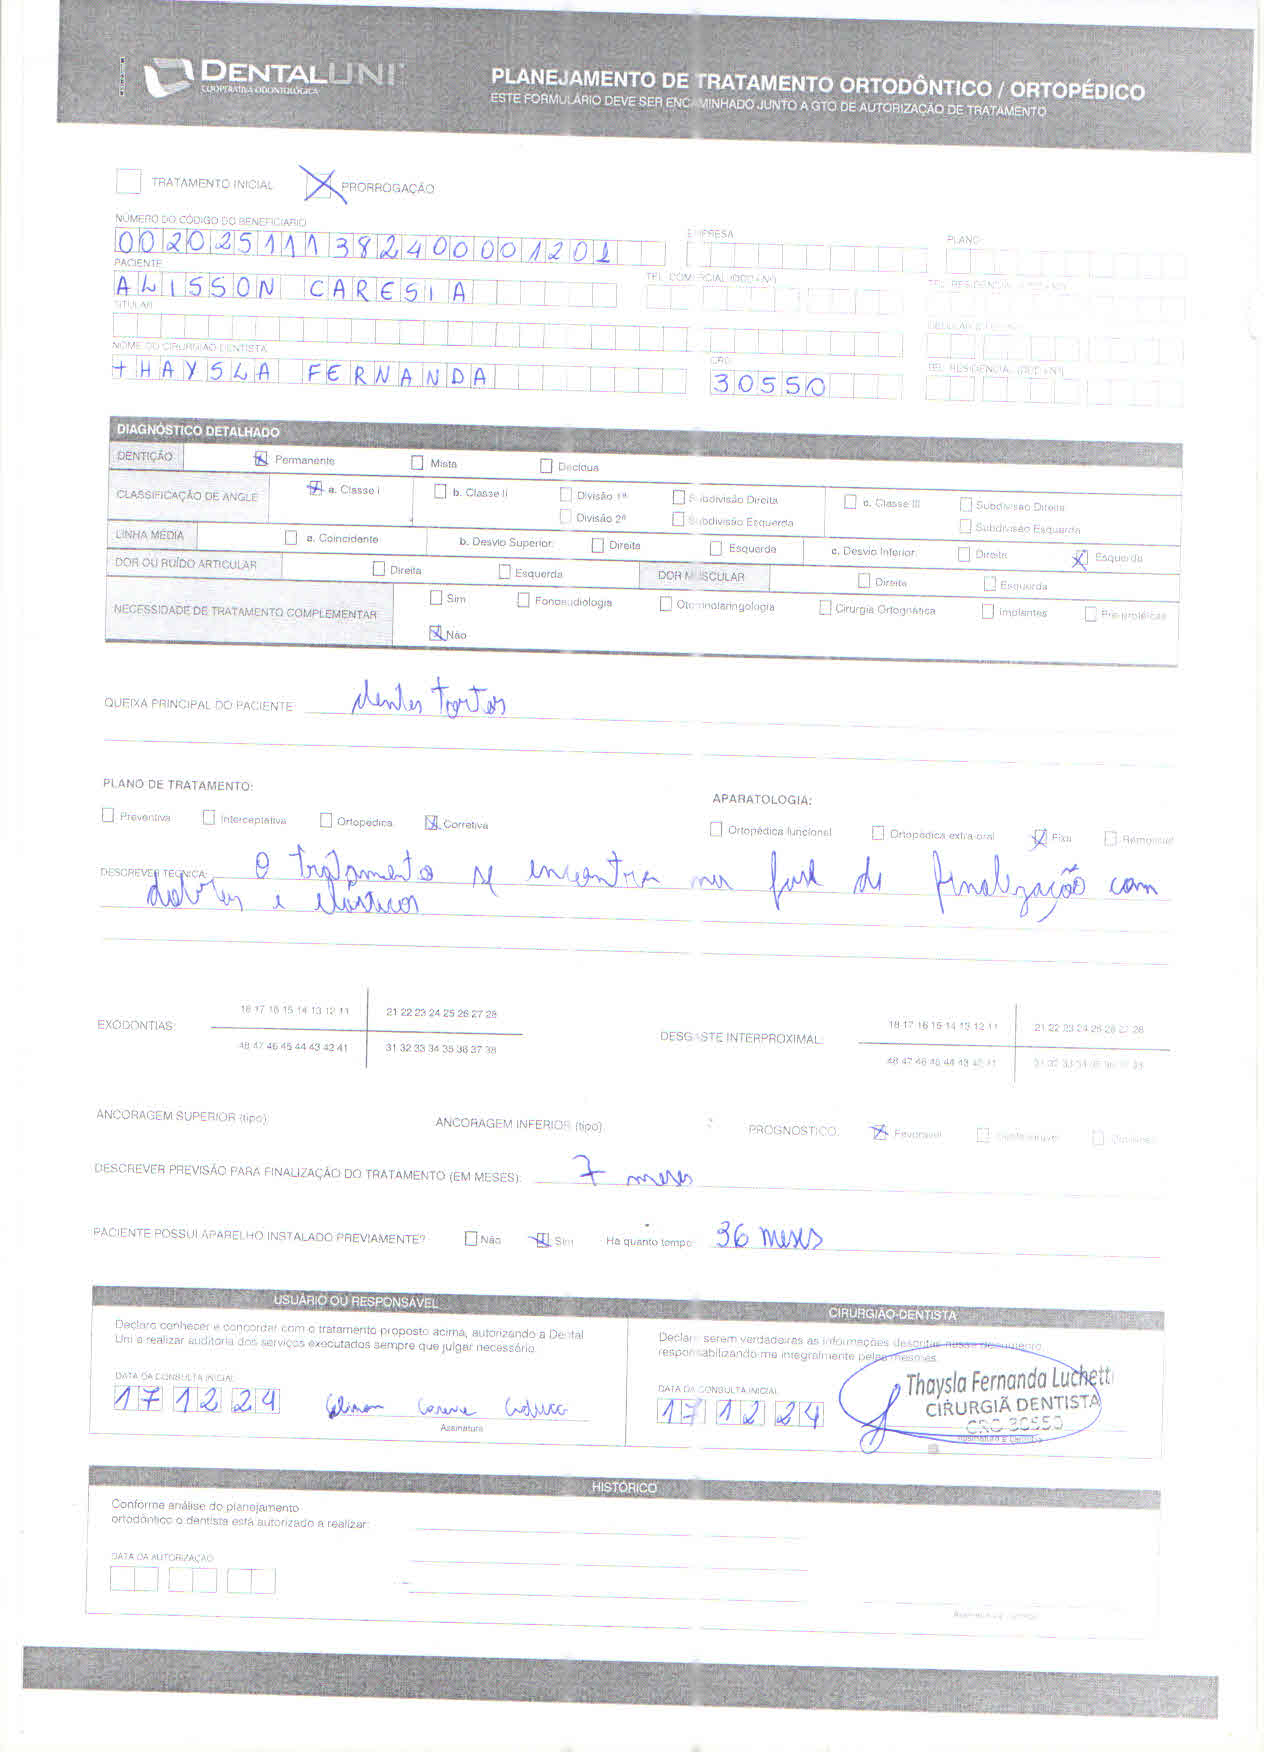 DENTALUNI
COOPERATIVA ODONTOLÓGICA
PLANEJAMENTO DE TRATAMENTO ORTODÔNTICO / ORTOPÉDICO
ESTE FORMULÁRIO DEVE SER ENCAMINHADO JUNTO A GTO DE AUTORIZAÇÃO DE TRATAMENTO
TRATAMENTO INICIAL PRORROGAÇÃO
NÚMERO DO CÓDIGO DO BENEFICIÁRIO EMPRESA PLANO
002025111382400001201
PACIENTE TEL. COMERCIAL (DDD + Nº) TEL. RESIDENCIAL (DDD + Nº)
ALISSON CARESIA
TITULAR CELULAR
NOME DO CIRURGIÃO DENTISTA CRO TEL. RESIDENCIAL (DDD + Nº)
THAYSLA FERNANDA 30550
DIAGNÓSTICO DETALHADO
DENTIÇÃO Permanente Mista Decídua
CLASSIFICAÇÃO DE ANGLE a. Classe I b. Classe II Divisão 1ª Subdivisão Direita c. Classe III Subdivisão Direita
Divisão 2ª Subdivisão Esquerda Subdivisão Esquerda
LINHA MÉDIA a. Coincidente b. Desvio Superior: Direita Esquerda c. Desvio Inferior: Direita Esquerda
DOR OU RUÍDO ARTICULAR Direita Esquerda DOR MUSCULAR Direita Esquerda
NECESSIDADE DE TRATAMENTO COMPLEMENTAR Sim Fonoaudiologia Otorrinolaringologia Cirurgia Ortognática Implantes Pré-protéticas
Não
QUEIXA PRINCIPAL DO PACIENTE: dentes tortos
PLANO DE TRATAMENTO: APARATOLOGIA:
Preventiva Interceptativa Ortopédica Corretiva Ortopédica funcional Ortopédica extra-oral Fixa Removível
DESCREVER TÉCNICA: O tratamento se encontra na fase de finalização com
dobras e elásticos
EXODONTIAS: 18 17 16 15 14 13 12 11 21 22 23 24 25 26 27 28
48 47 46 45 44 43 42 41 31 32 33 34 35 36 37 38
DESGASTE INTERPROXIMAL: 18 17 16 15 14 13 12 11 21 22 23 24 25 26 27 28
48 47 46 45 44 43 42 41 31 32 33 34 35 36 37 38
ANCORAGEM SUPERIOR (tipo): ANCORAGEM INFERIOR (tipo): PROGNÓSTICO: Favorável Desfavorável
DESCREVER PREVISÃO PARA FINALIZAÇÃO DO TRATAMENTO (EM MESES): 7 meses
PACIENTE POSSUI APARELHO INSTALADO PREVIAMENTE? Não Sim Há quanto tempo: 36 meses
USUÁRIO OU RESPONSÁVEL
Declaro conhecer e concordar com o tratamento proposto acima, autorizando a Dental
Uni a realizar auditoria dos serviços executados sempre que julgar necessário.
DATA DA CONSULTA INICIAL
17 12 24
Assinatura
CIRURGIÃO-DENTISTA
Declaro serem verdadeiras as informações descritas nesse documento,
responsabilizando-me integralmente pelas mesmas.
DATA DA CONSULTA INICIAL
17 12 24
Thaysla Fernanda Luchetti
CIRURGIÃ DENTISTA
CRO 30550
HISTÓRICO
Conforme análise do planejamento
ortodôntico o dentista está autorizado a realizar:
DATA DA AUTORIZAÇÃO